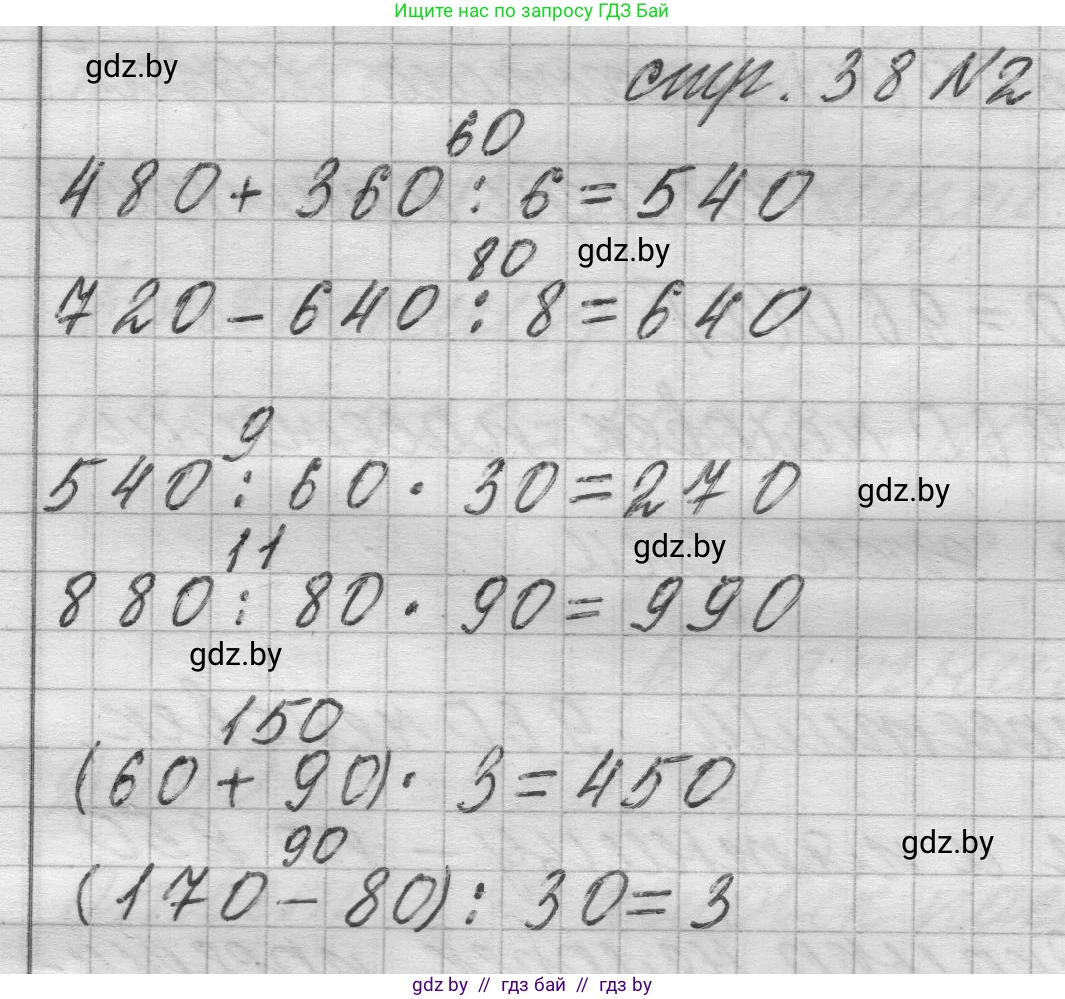 Ищите нас по запросу ГДЗ Бай
gdz.by
стр. 38 №2
60
480 + 360 : 6 = 540
80
gdz.by
720 - 640 : 8 = 640
9
540 : 60 · 30 = 270
gdz.by
11
gdz.by
880 : 80 · 90 = 990
gdz.by
150
(60 + 90) · 3 = 450
90
gdz.by
(170 - 80) : 30 = 3
gdz.by // гдз бай // gdz by